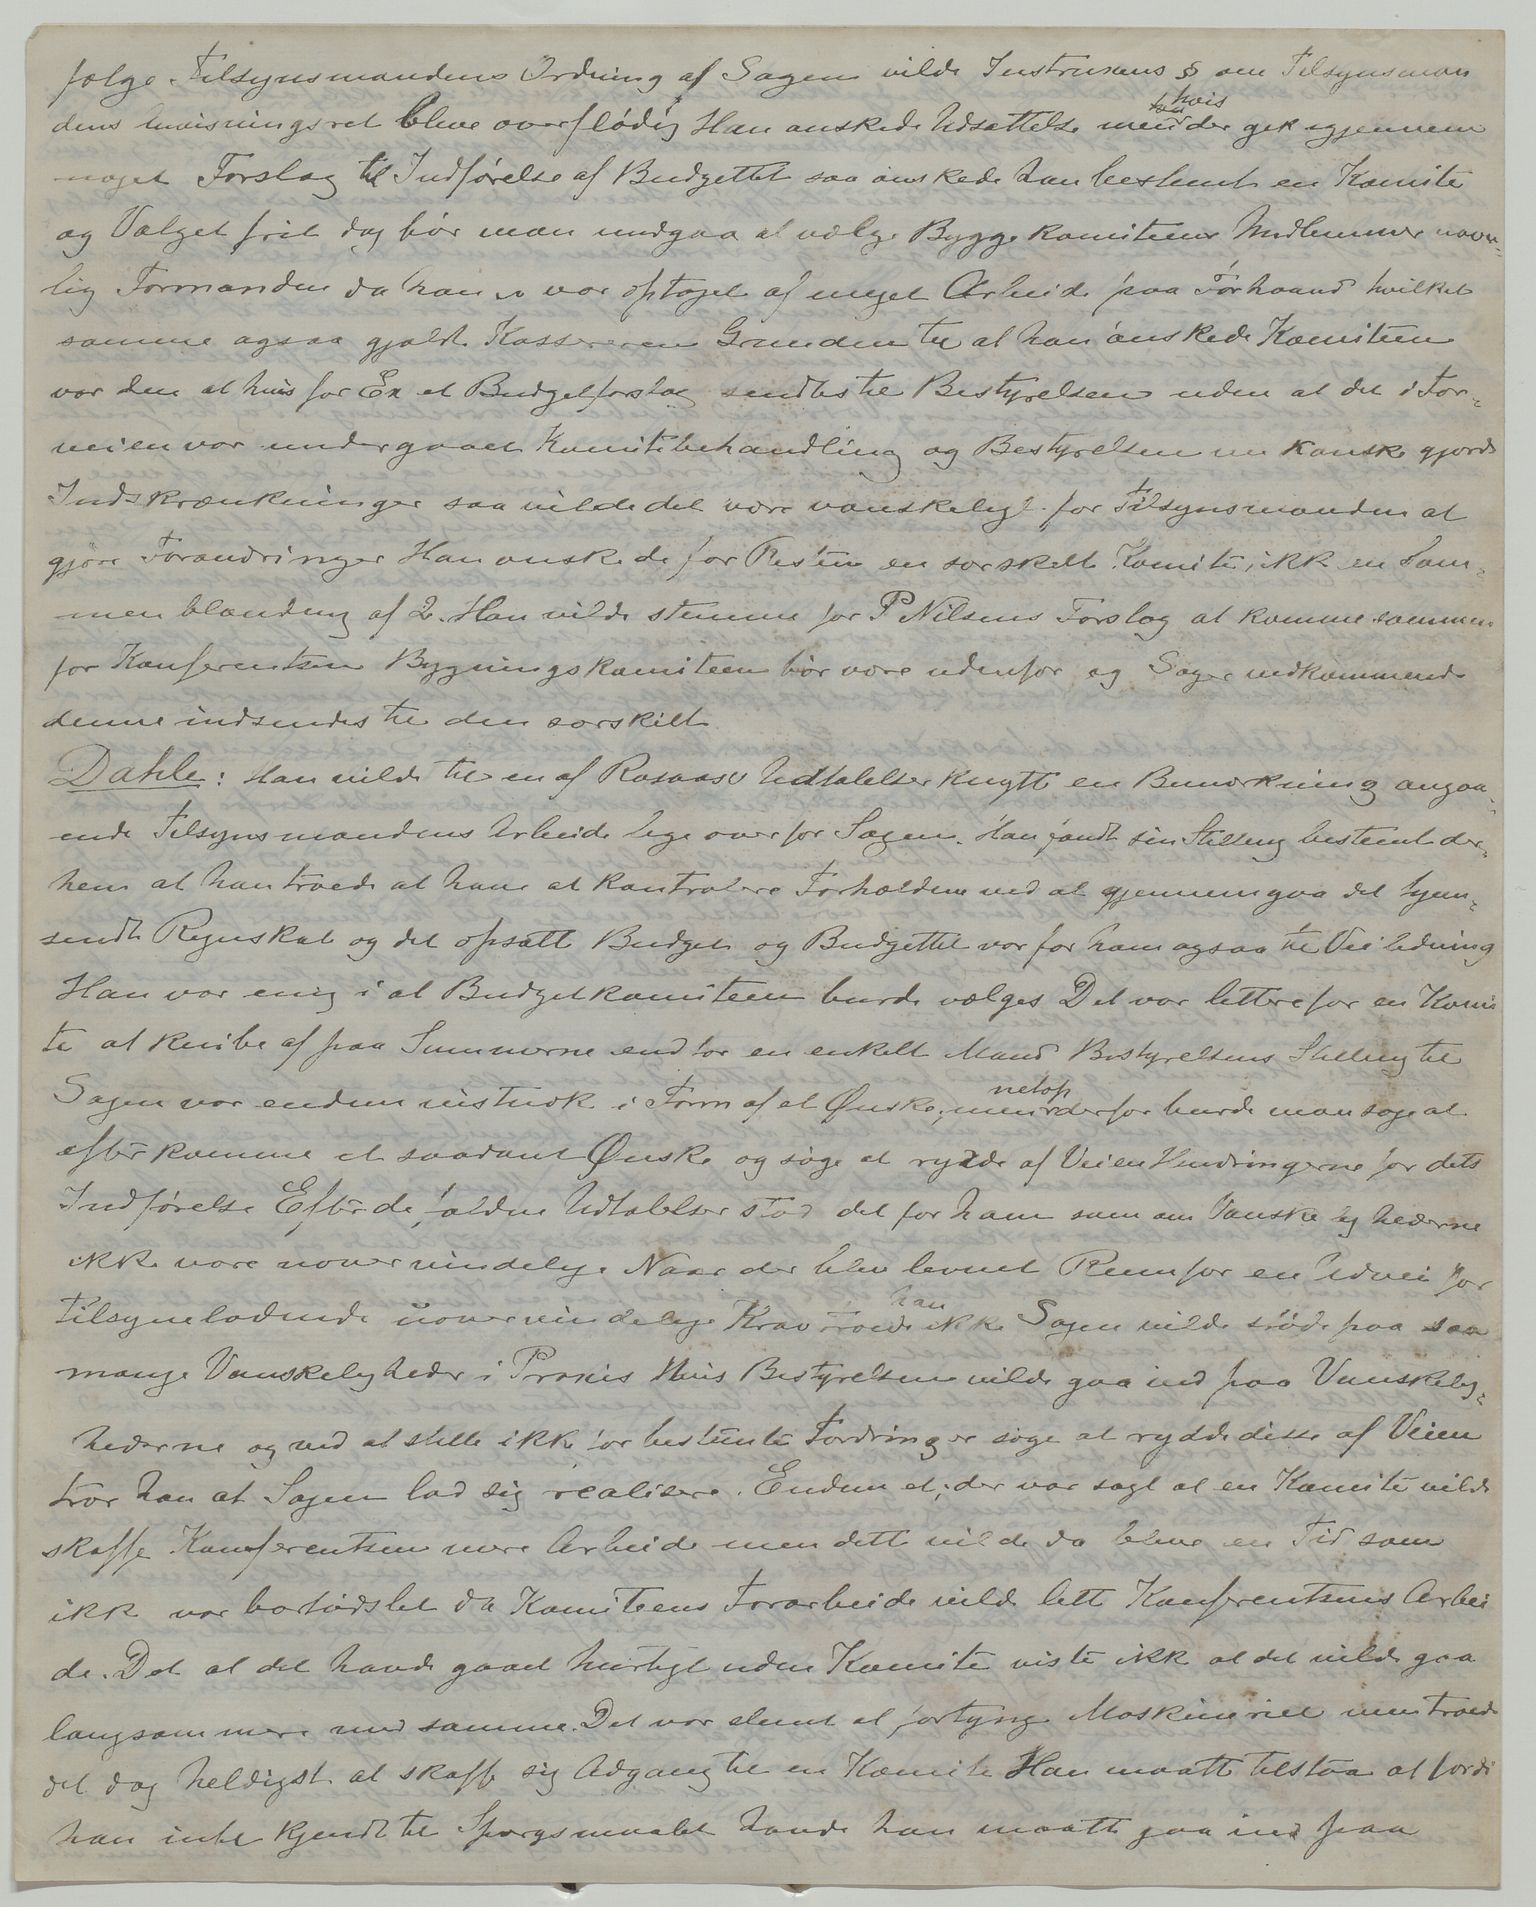 følge Tilsynsmandens Ordning af Sagen vilde Instruxens § om Tilsynsman
dens anvisningsret blive overflødig Han ønskede Udsættelse men hvis der gik igjennem
noget Forslag til Indførelse af Budgettet saa ønskede han bestemt en Komite
og Valget frit dog bør man undgaa at vælge Byggekomiteens Medlemmer navn-
lig Formanden da han var optaget af meget Arbeide paa Forhaand hvilket
samme ogsaa gjaldt Kassereren Grunden til at han ønskede Komiteen
var den at hvis for Ex et Budgetforslag sendtes til Bestyrelsen uden at det i For-
veien var undergaaet Komitebehandling og Bestyrelsen nu kanske gjorde
Indskrænkninger saa vilde det være vanskeligt for Tilsynsmanden at
gjøre Forandringer Han ønskede for Resten en særskilt Komite, ikke en Sam-
menblanding af 2. Han vilde stemme for P Nilsens Forslag at komme sammen
for Konferentsen Bygningskomiteen bør være udenfor og Sager vedkommende
denne indsendes til den særskilt
Dahle: Han vilde til en af Rosaas's Udtalelser knytte en Bemærkning angaa-
ende Tilsynsmandens Arbeide lige overfor Sagen. Han fandt sin Stilling bestemt der-
hen at han troede at have at kontrolere Forholdene ved at gjennemgaa det hjem-
sendte Regnskab og det opsatte Budget og Budgettet var for ham ogsaa til Veiledning
Han var enig i at Budgetkomiteen burde vælges Det var lettere for en Komi
te at knibe af paa Summerne end for en enkelt Mand Bestyrelsens Stilling til
Sagen var endnu istruck i Form af et Ønske, men netop derfor burde man søge at
efterkomme et saadant Ønske og søge at rydde af Veien Hindringerne for dets
Indførelse Efter de faldne Udtalelser stod det for ham som om Vanskelighederne
ikke vare uovervindelige Naar der blev levnet Rum for en Udvei for
tilsyneladende uovervindelige Krav troede han ikke Sagen vilde støde paa saa
mange Vanskeligheder i Praxis Hvis Bestyrelsen vilde gaa ind paa Vanskelig-
hederne og ved at stille ikke for bestemte Fordringer søge at rydde disse af Veien
tror han at Sagen lod sig realisere. Endnu et; der var sagt at en Komite vilde
skaffe Konferentsen mere Arbeide men dette vilde da blive en Tid som
ikke var bortødslet da Komiteens Forarbeide vilde lette Konferentsens Arbei
de. Det at det havde gaaet hurtigt uden Komite viste ikke at det vilde gaa
langsommere med samme. Det var slemt at fortynge Maskineriet men troede
det dog heldigst at skaffe sig Adgang til en Komite Han maatte tilstaa at fordi
han intet kjendte til Spørgsmaalet havde han maatte gaa ind paa